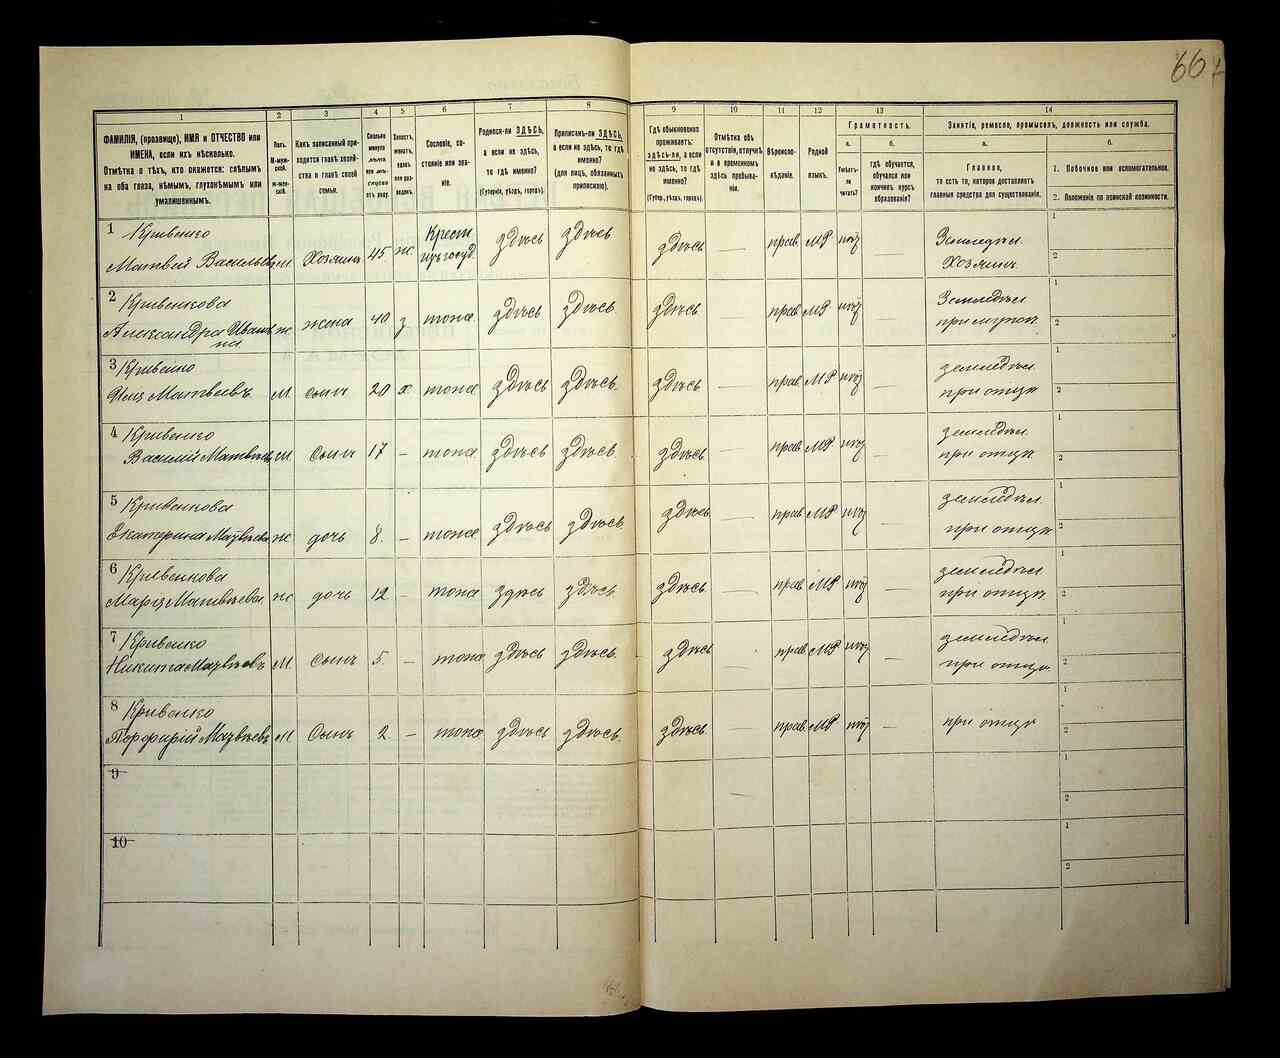 66
1 2 3 4 5 6 7 8 9 10 11 12 13 14
ФАМИЛІЯ, (прозвище), ИМЯ и ОТЧЕСТВО или
ИМЕНА, если ихъ нѣсколько.
Отмѣтка о тѣхъ, кто окажется: слѣпымъ
на оба глаза, нѣмымъ, глухонѣмымъ или
умалишеннымъ.
Полъ.
М-муж-
ской.
ж-жен-
скій.
Какъ записанный при-
ходится главѣ хозяй-
ства и главѣ своей
семьи.
Сколько
минуло
лѣтъ
или мѣ-
сяцевъ
отъ роду.
Холостъ,
женатъ,
вдовъ
или раз-
веденъ.
Сословіе, со-
стояніе или зва-
ніе.
Родился-ли ЗДѢСЬ,
а если не здѣсь,
то гдѣ именно?
(Губернія, уѣздъ, городъ).
Приписанъ-ли ЗДѢСЬ,
а если не здѣсь, то гдѣ
именно?
(для лицъ, обязанныхъ
припискою).
Гдѣ обыкновенно
проживаетъ:
здѣсь-ли, а если
не здѣсь, то гдѣ
именно?
(Губер., уѣздъ, городъ).
Отмѣтка объ
отсутствіи, отлучкѣ
и о временномъ
здѣсь пребыва-
ніи.
Вѣроиспо-
вѣданіе.
Родной
языкъ.
Грамотность.
а. б.
Умѣетъ-
ли
читать?
гдѣ обучается,
обучался или
кончилъ курсъ
образованія?
Занятіе, ремесло, промыселъ, должность или служба.
а. б.
Главное,
то есть то, которое доставляетъ
главныя средства для существованія.
1. Побочное или вспомогательное.
2. Положеніе по воинской повинности.
1 Кривенко
Матвей Васильев м. Хозяинъ 45 ж. Крест. изъ госуд. здѣсь здѣсь здѣсь — прав. МР нѣт — Земледѣл. Хозяинъ 1 2
2 Кривенкова
Александра Иван ж жена 40 з тоже здѣсь здѣсь здѣсь — прав МР нѣт — Земледѣл. при мужѣ. 1 2
3 Кривенко
Илія Матвѣевъ. м. сынъ 20 х. тоже здѣсь здѣсь здѣсь — прав. МР нѣт — земледѣл. при отцѣ 1 2
4 Кривенко
Василій Матвѣев м. Сынъ 17 – тоже здѣсь здѣсь здѣсь — прав МР нѣт — земледѣл. при отцѣ. 1 2
5 Кривенкова
Екатерина Матвѣева ж дочь 8. – тоже здѣсь здѣсь здѣсь — прав МР нѣт — земледѣл. при отцѣ 1 2
6 Кривенкова
Марія Матвѣева. ж дочь 12 – тоже здѣсь здѣсь здѣсь — прав МР нѣт — земледѣл. при отцѣ 1 2
7 Кривенко
Никита Матвѣевъ М. Сынъ 5. – тоже здѣсь здѣсь здѣсь — прав МР нѣт — земледѣл при отцѣ. 1 2
8 Кривенко
Порфирій Матвѣевъ М Сынъ 2 – тоже здѣсь здѣсь. здѣсь — прав МР нѣт — при отцѣ 1 2
9 — 1 2
10 1 2